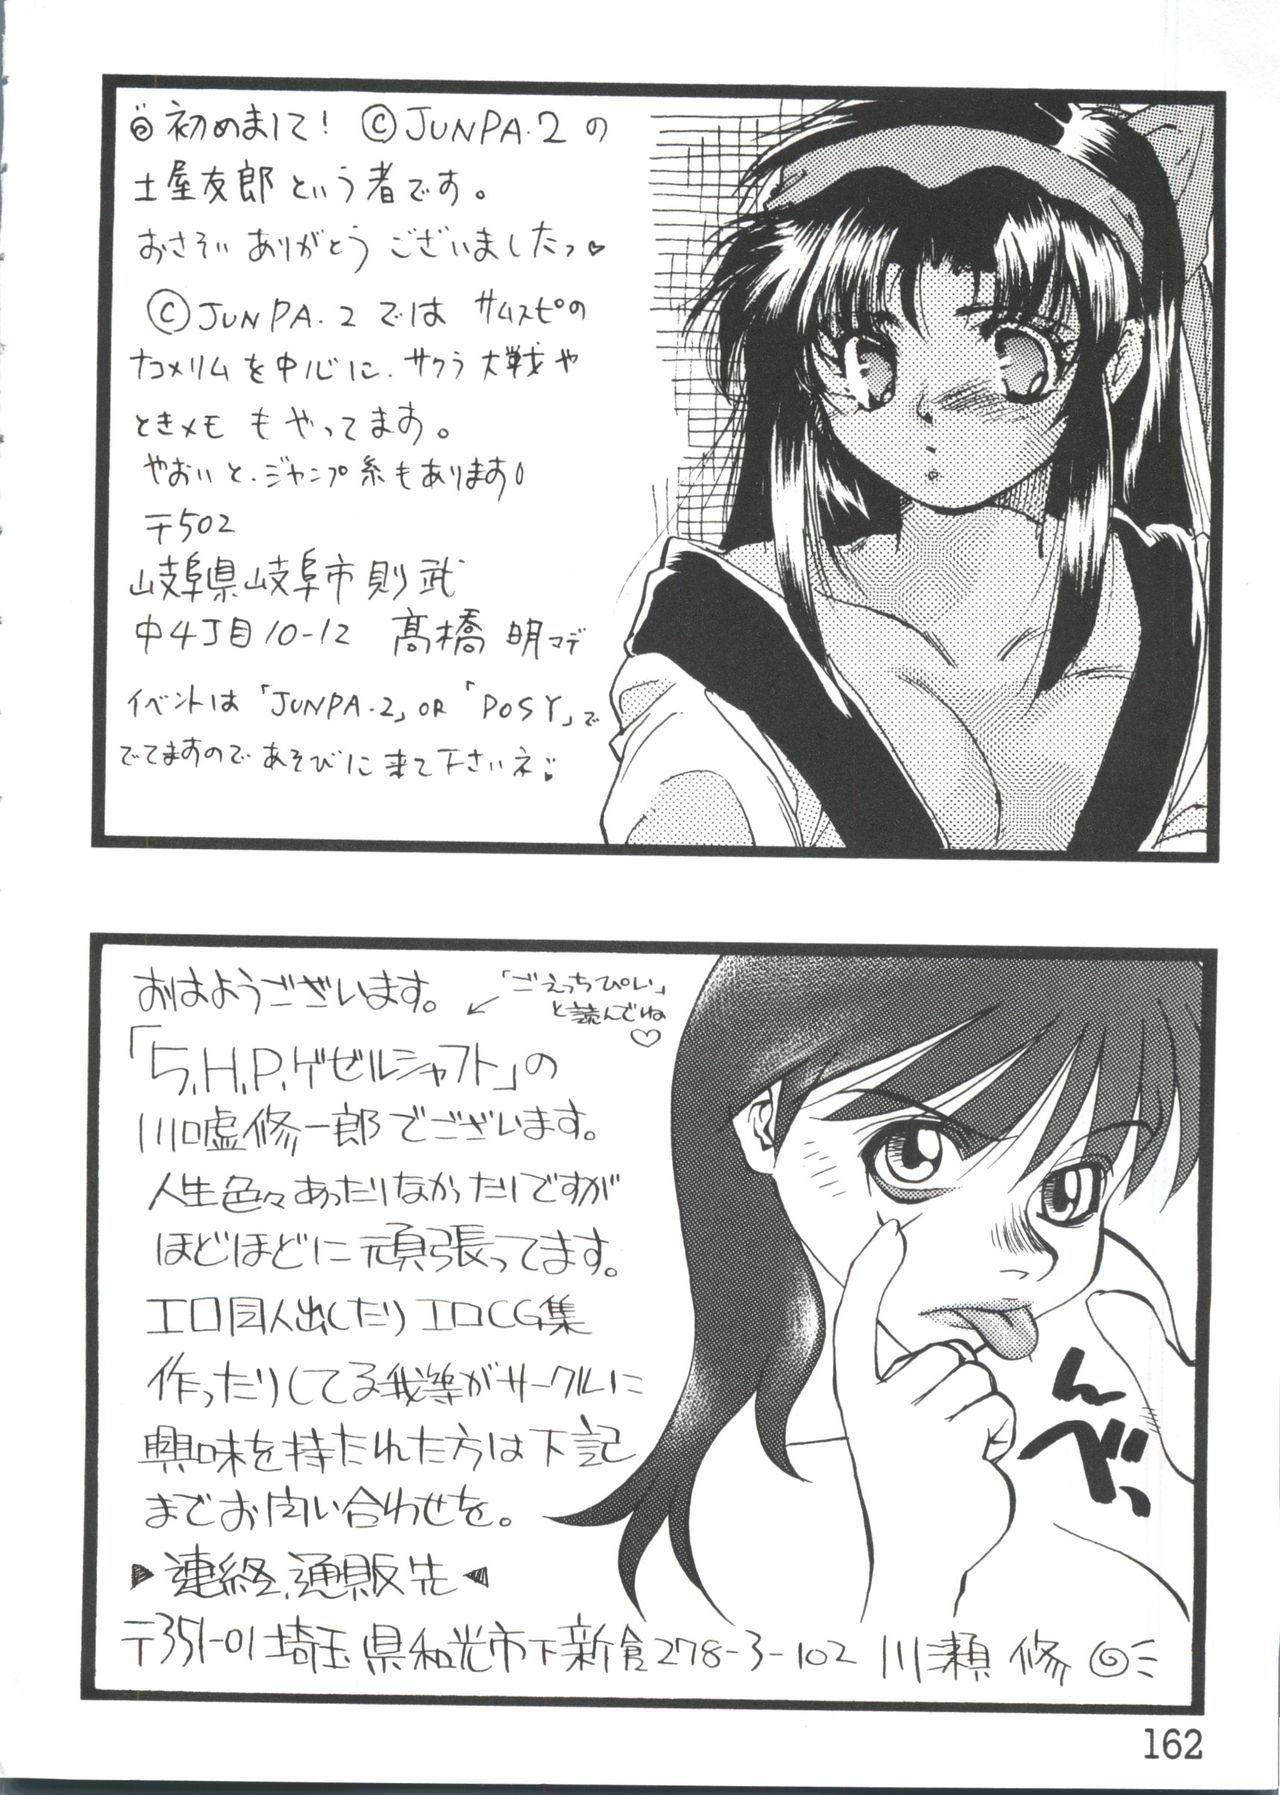 初めまして! ©JUNPA・2の
土屋友郎という者です。
おさそい ありがとう ございましたっ♡
©JUNPA・2では サムスピの
ナコメリムを中心に、サクラ大戦や
ときメモ もやってます。
やおいと、ジャンプ系もあります!
〒502
岐阜県岐阜市則武
中4丁目10-12 高橋 明マデ
イベントは「JUNPA・2」OR「POSY」で
でてますので あそびに 来て下さいネ♡
おはようございます。
「ごえっちぴい」
と読んでね
♡
「5.H.P.ゲゼルシャフト」の
川口虚修一郎でございます。
人生色々あったりなかったりですが
ほどほどに頑張ってます。
エロ同人出したり エロCG集
作ったりしてる我等がサークルに
興味を持たれた方は下記
までお問い合わせを。
▶連絡、通販先◀
〒351-01 埼玉県和光市下新倉278-3-102 川瀬 修
んべっ
162